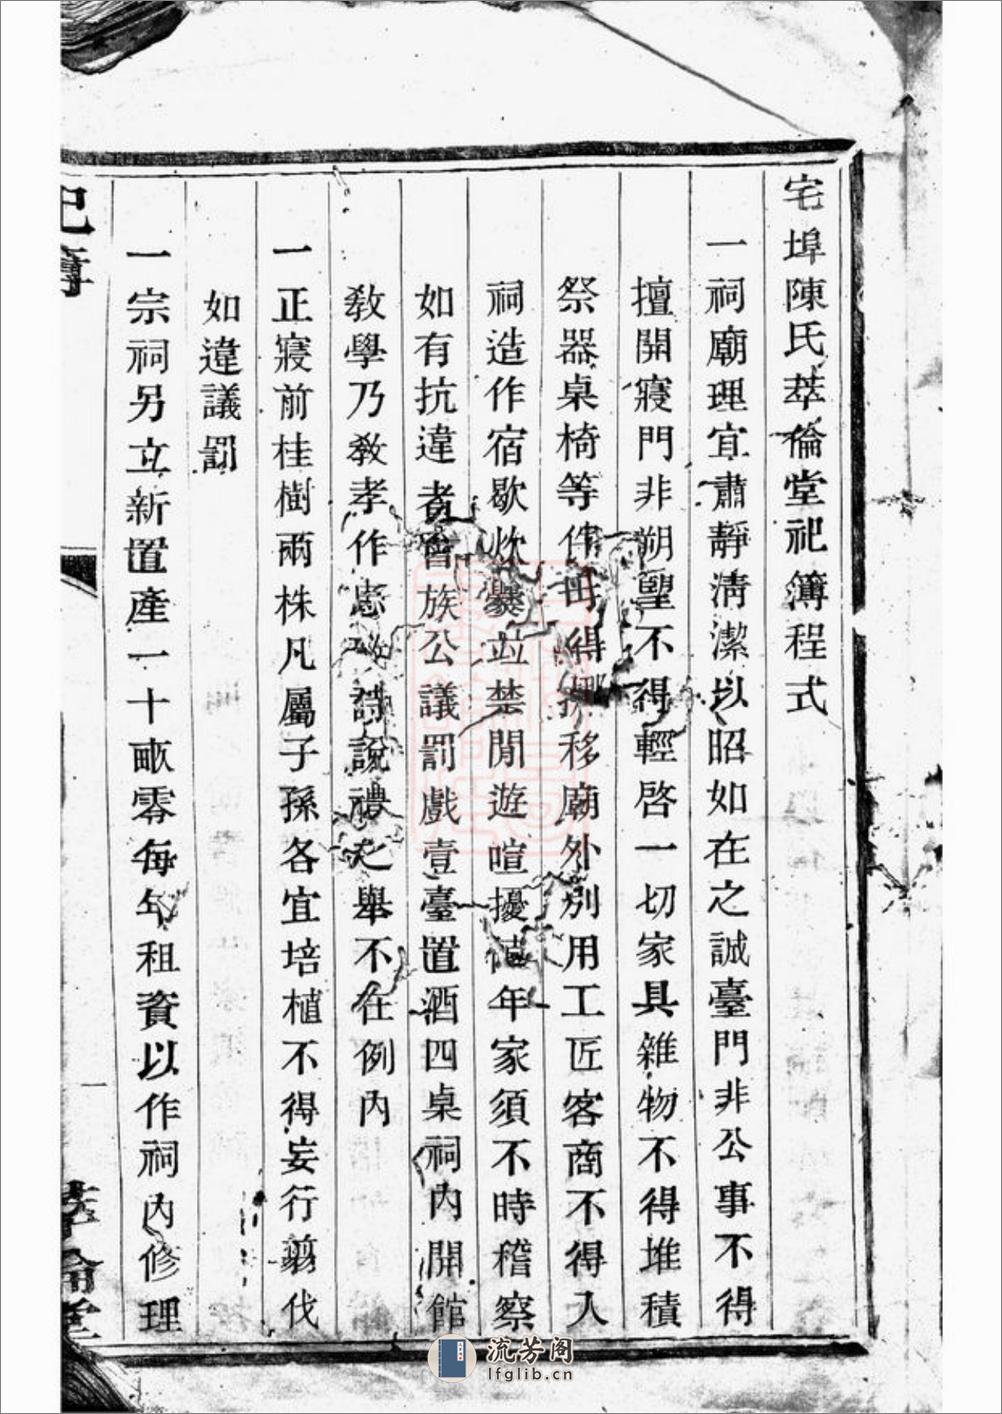 宅埠陳氏萃倫堂祀簿程式
一祠廟理宜肅靜淸潔以昭如在之誠臺門非公事不得
擅開寢門非朔望不得輕啓一切家具雜物不得堆積
祭器桌椅等件毋得挪移廟外別用工匠客商不得入
祠造作宿歇炊爨竝禁閒遊喧擾値年家須不時稽察
如有抗違者會族公議罰戲壹臺置酒四桌祠內開館
敎學乃敎孝作忠詩說禮之舉不在例內
一正寢前桂樹兩株凡屬子孫各宜培植不得妄行剪伐
如違議罰
一宗祠另立新置產一十畝零每年租資以作祠內修理
祀簿
一
萃倫堂
流芳阁
lfglib.cn